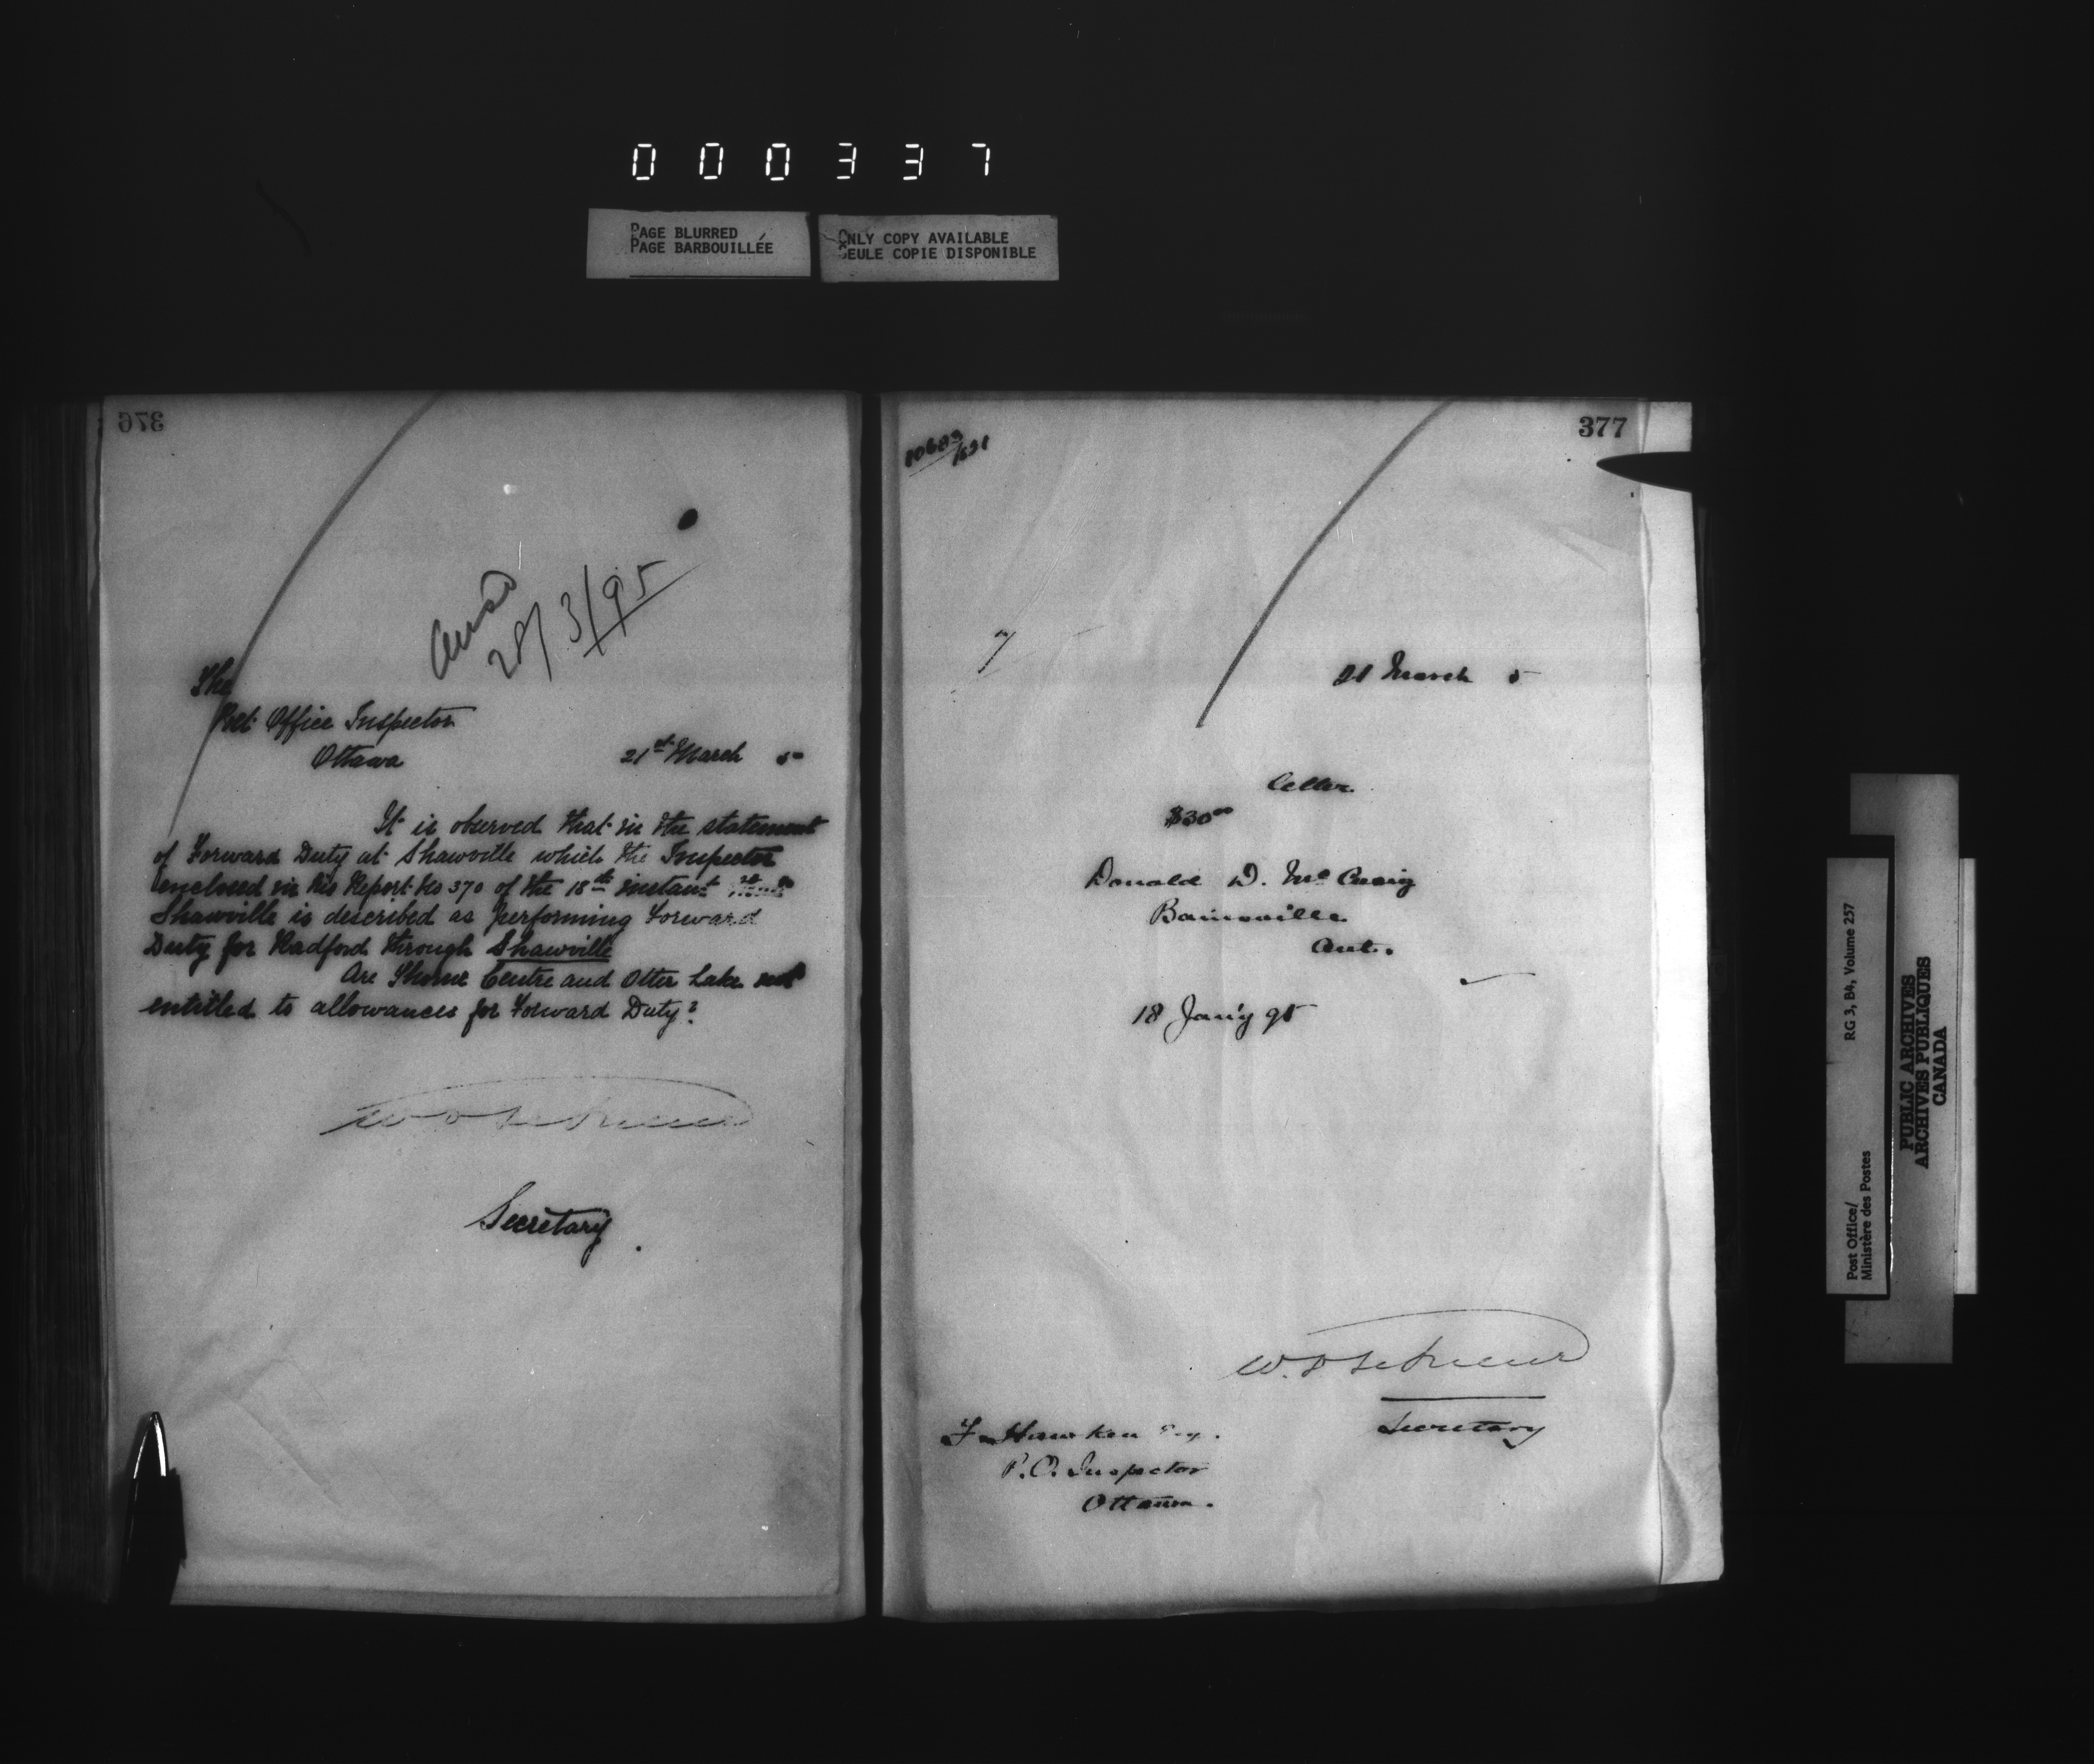 000337
PAGE BLURRED
PAGE BARBOUILLÉE
ONLY COPY AVAILABLE
SEULE COPIE DISPONIBLE
376
Ansd
28/3/95
The
Post Office Inspector
Ottawa 21st March 5
It is observed that in the statement
of Forward Duty at Shawville which the Inspector
enclosed in his Report No 370 of the 18th instant
Shawville is described as performing Forward
Duty for Radford through Shawville
Are Thorne Centre and Otter Lake not
entitled to allowances for Forward Duty?
Secretary.
377
21 March 5
letter
$30.00
Donald D. McCuaig
Bainsville
Ont.
18 Jan'y 95
Secretary
F. Hawken Esq.
P.O. Inspector
Ottawa.
Post Office/
Ministère des Postes
RG 3, B4, Volume 257
PUBLIC ARCHIVES
ARCHIVES PUBLIQUES
CANADA